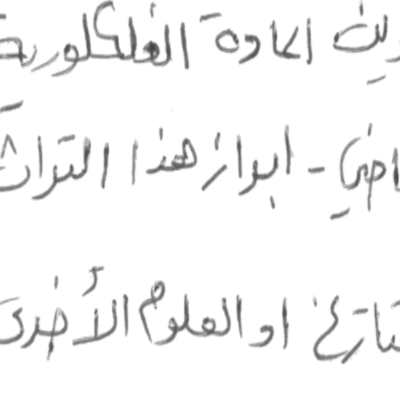 المادة الفلكلورية
اضي - ابراز هذا التراث
تاريخ او العلوم الأخرى